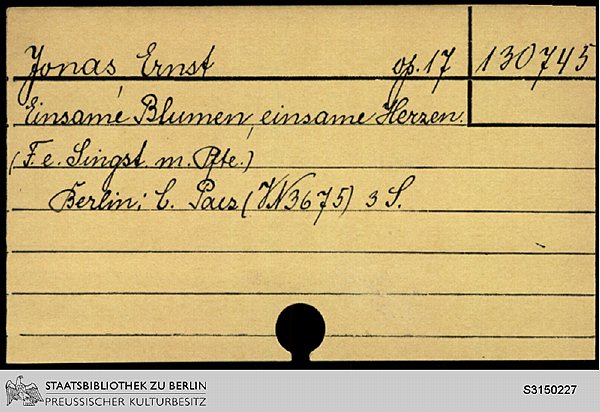 Jonas, Ernst op. 17 130745
Einsame Blumen, einsame Herzen.
(F. e. Singst. m. Pfte.)
Berlin: C. Paez (VN 3675) 3 S.
STAATSBIBLIOTHEK ZU BERLIN
PREUSSISCHER KULTURBESITZ
S3150227